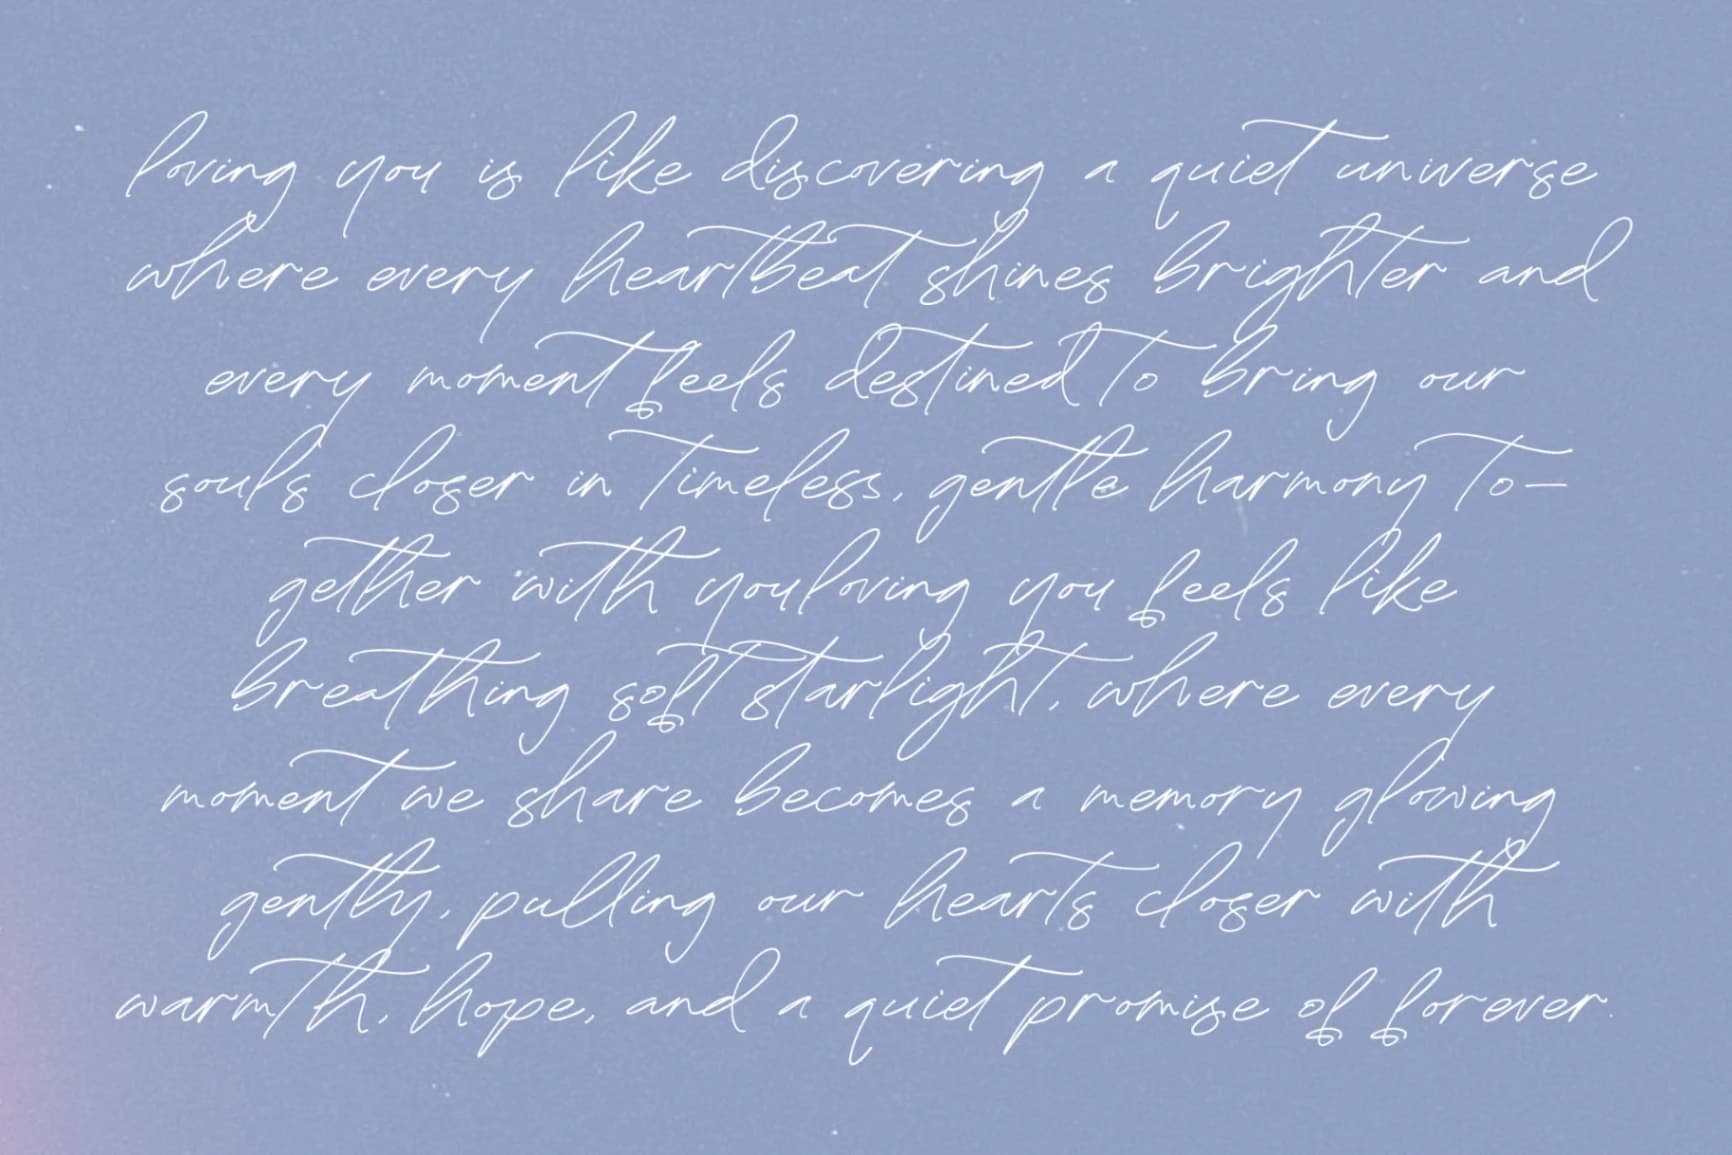 loving you is like discovering a quiet universe
where every heartbeat shines brighter and
every moment feels destined to bring our
souls closer in timeless, gentle harmony to-
gether with youloving you feels like
breathing soft starlight, where every
moment we share becomes a memory glowing
gently, pulling our hearts closer with
warmth, hope, and a quiet promise of forever.